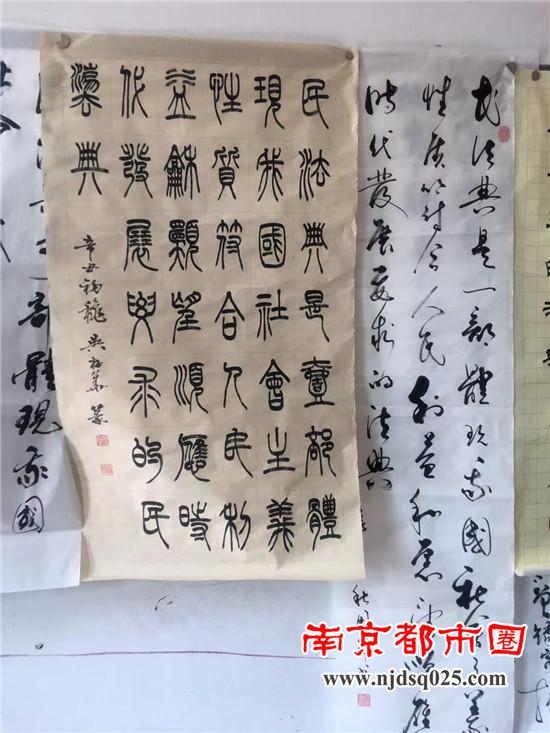 民法典是壹部體
現我國社會主義
性質符合人民利
益龢願望順應時
代發展要求的民
灋典
辛丑
民法典是一部體現我國社會主義
性质符合人民利益和愿望順應
時代發展要求的法典
部體現我國
南京都市圈
www.njdsq025.com